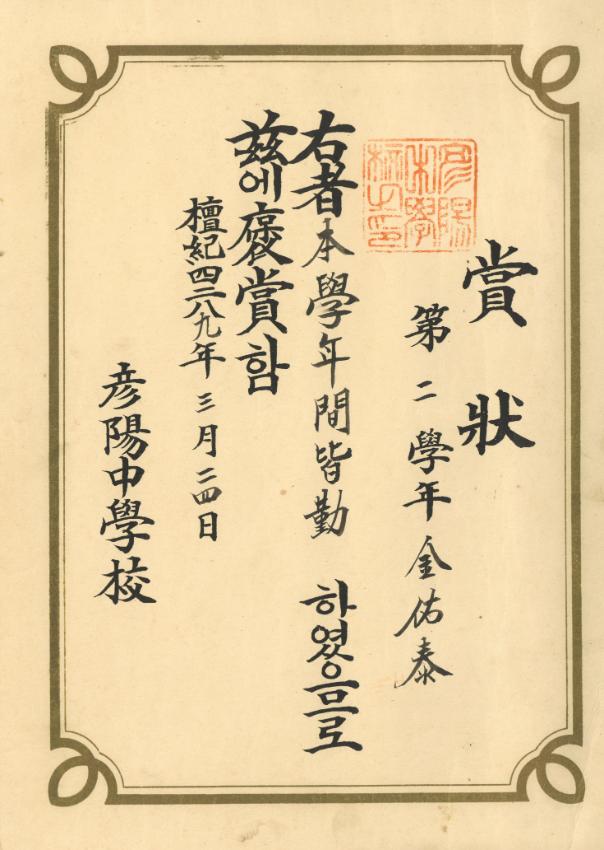 賞狀
第二學年 金佑泰
右者本學年間皆勤 하였음으로
玆에 褒賞함
檀紀四二八九年 三月 二四日
彦陽中學校
彦陽中學校之印